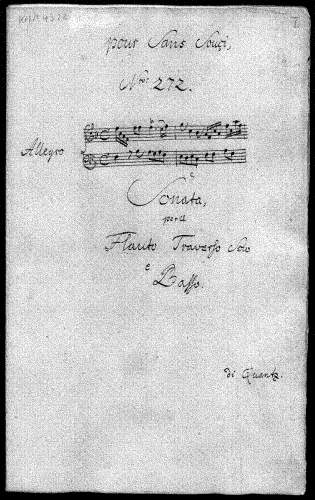 pour Sans Souçi,
Nro: 272.
Allegro
Sonata,
per il
Flauto Traverso Solo
e
Basso.
di Quantz.